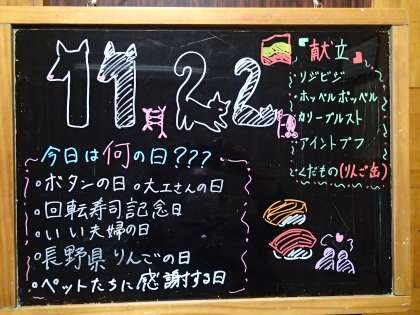 11月22日
『献立』
・リジビジ
・ホッペルポッペル
・カリーブルスト
・アイントプフ
・くだもの(りんご缶)
今日は何の日???
。ボタンの日 。大工さんの日
。回転寿司記念日
。いい夫婦の日
。長野県りんごの日
。ペットたちに感謝する日